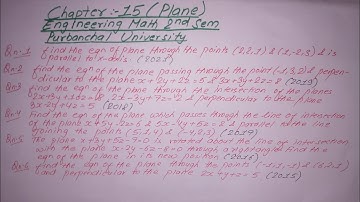 Chapter:-15 (Plane)
Engineering Math 2nd Sem
Purbanchal University
Qn:-1 find the eqn of plane through the points (2,2,1) & (1,-2,3) & is
parallel to x-axis. (2021)
Qn-2 find the eqn of the plane passing through the point (-1,3,2) & perpen-
dicular to the plane x+2y+2z=5 & 3x+3y+2z=8 (2019)
Qn-3 find the eqn of the plane through the intersection of the planes
& perpendicular to the plane
3x-2y+4z=5 (2018)
Qn-4 find the eqn of the plane which passes through the line of intersection
of the plane & parallel to the line
joining the points (2019)
Qn-5 The plane is rotated about the line of intersection
with the plane through a right angle. find the
eqn of the plane in its new position (2016)
Qn-6 find the eqn of the plane through the points
and perpendicular to the plane (2015)